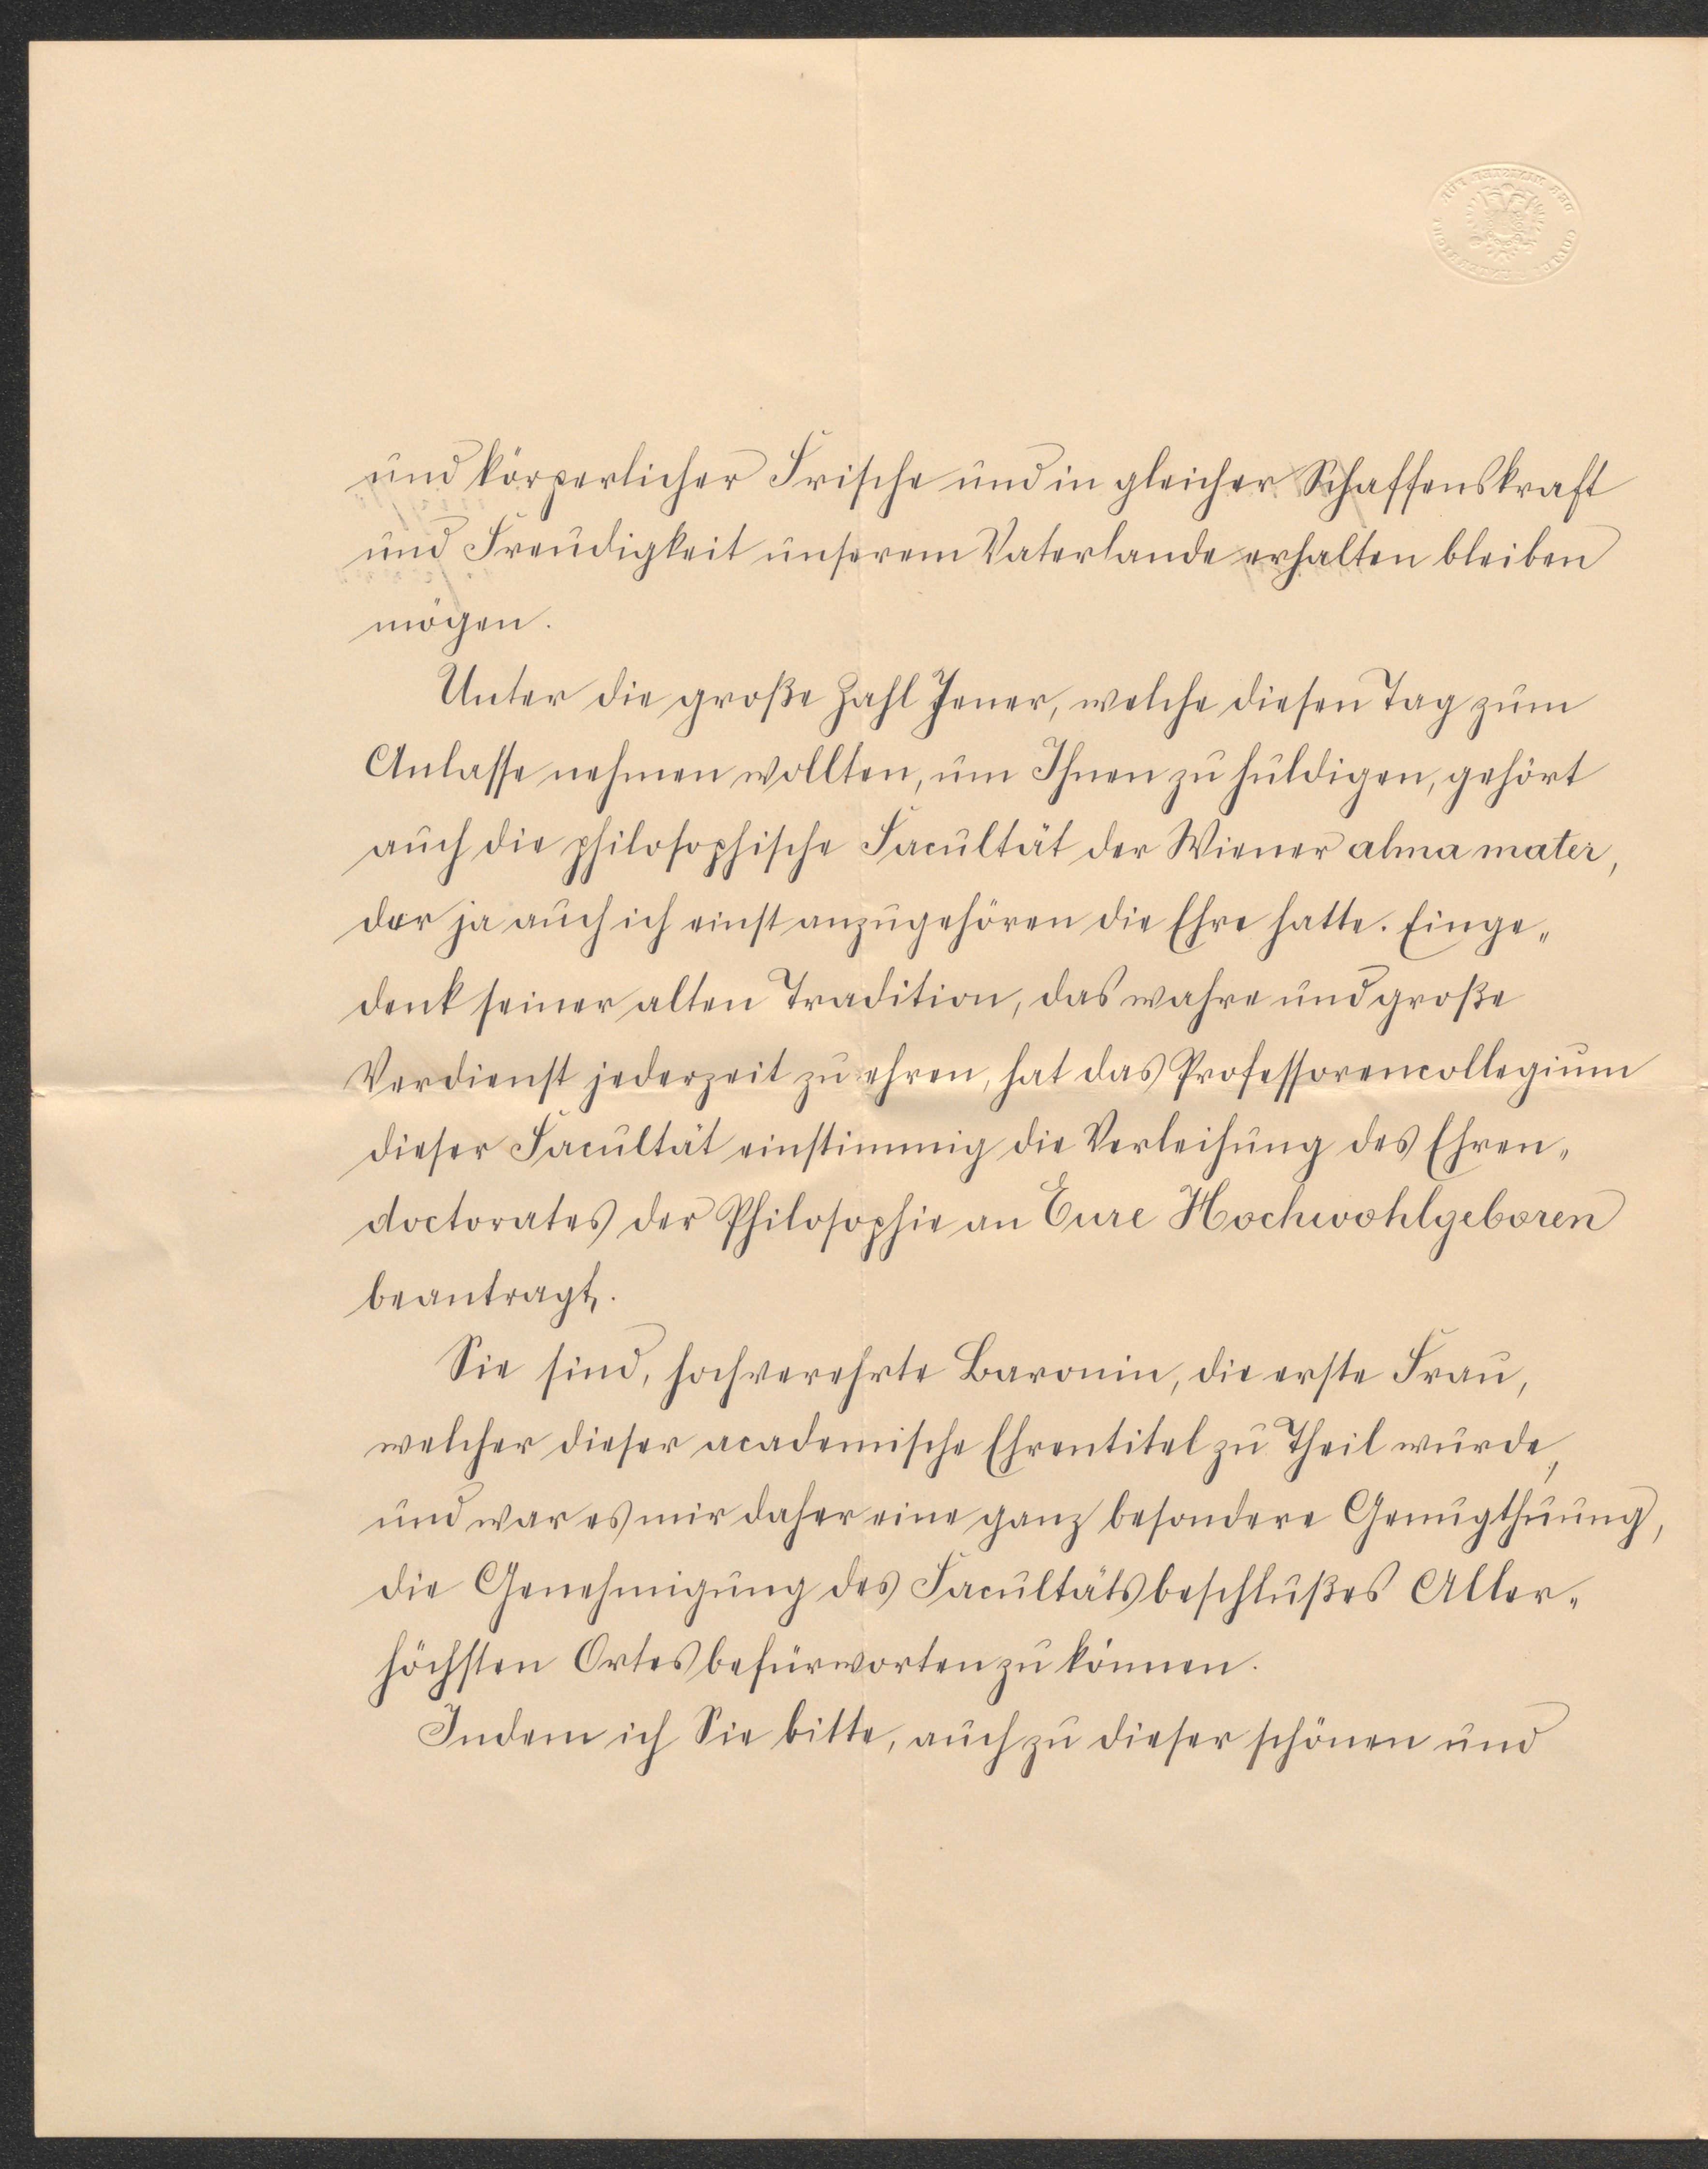 DER MINISTER FÜR
CULTUS U. UNTERRICHT
und körperlicher Frische und in gleicher Schaffenskraft
und Freudigkeit unserem Vaterlande erhalten bleiben
mögen.
Unter die große Zahl Jener, welche diesen Tag zum
Anlasse nehmen wollten, um Ihnen zu huldigen, gehört
auch die philosophische Facultät der Wiener alma mater,
der ja auch ich einst anzugehören die Ehre hatte. Einge„
denk seiner alten Tradition, das wahre und große
Verdienst jederzeit zu ehren, hat das Professorencollegium
dieser Facultät einstimmig die Verleihung des Ehren„
doctorates der Philosophie an Eure Hochwohlgeboren
beantragt.
Sie sind, hochverehrte Baronin, die erste Frau,
welcher dieser academische Ehrentitel zu Theil wurde,
und war es mir daher eine ganz besondere Genugthuung,
die Genehmigung des Facultätsbeschlußes Aller„
höchsten Ortes befürworten zu können.
Indem ich Sie bitte, auch zu dieser schönen und